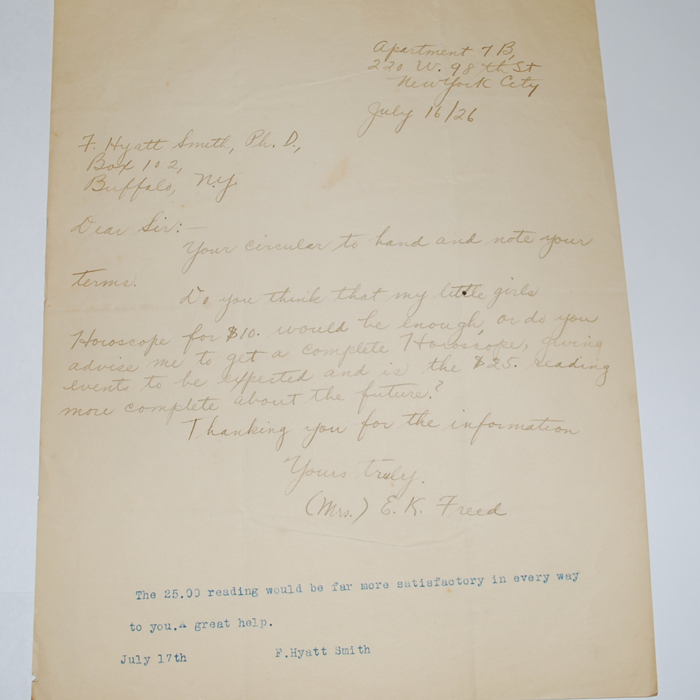 Apartment 7B,
220 W. 98th St
New York City
July 16/26
F. Hyatt Smith, Ph. D.,
Box 102,
Buffalo, N.Y.
Dear Sir:—
Your circular to hand and note your
terms.
Do you think that my little girls
Horoscope for $10. would be enough, or do you
advise me to get a complete Horoscope, giving
events to be expected and is the $25. reading
more complete about the future?
Thanking you for the information
Yours truly.
(Mrs.) E. K. Freed
The 25.00 reading would be far more satisfactory in every way
to you.A great help.
July 17th F.Hyatt Smith